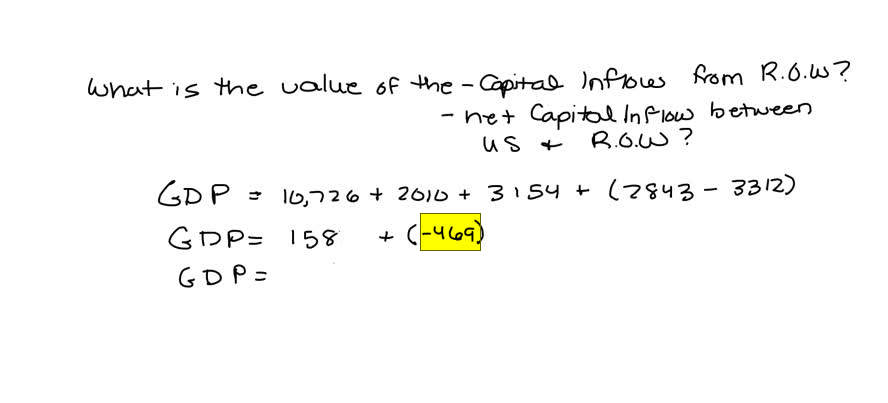 What is the value of the - Capital Inflows from R.O.W?
- net Capital Inflow between
US + R.O.W?
GDP = 10,726 + 2010 + 3154 + (2843 - 3312)
GDP = 158 + (-469)
GDP =